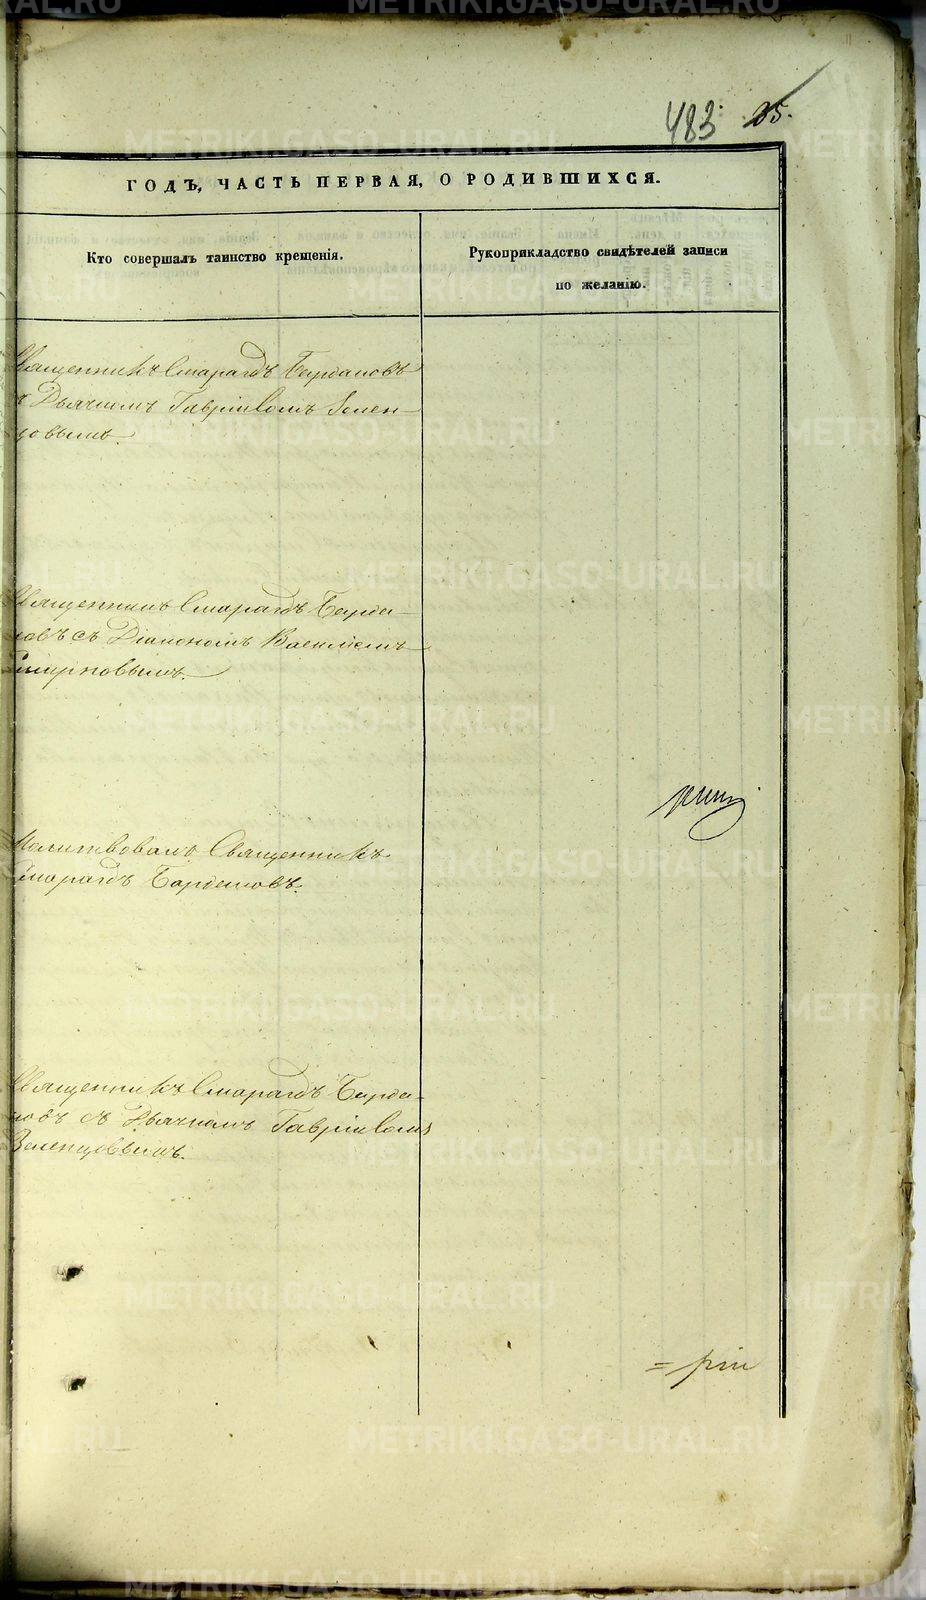 483. 35.
ГОДЪ, ЧАСТЬ ПЕРВАЯ, О РОДИВШИХСЯ.
Кто совершалъ таинство крещенія.
Рукоприкладство свидѣтелей записи
по желанію.
Священникъ Смарагдъ Бардаковъ
съ Дьячкомъ Гавріиломъ Зелен-
цовымъ.
Священникъ Смарагдъ Барда-
ковъ съ Діакономъ Василіемъ
Смирновымъ.
Молитвовалъ Священникъ
Смарагдъ Бардаковъ.
Священникъ Смарагдъ Барда-
ковъ съ Дьячкомъ Гавріиломъ
Зеленцовымъ.
METRIKI.GASO-URAL.RU